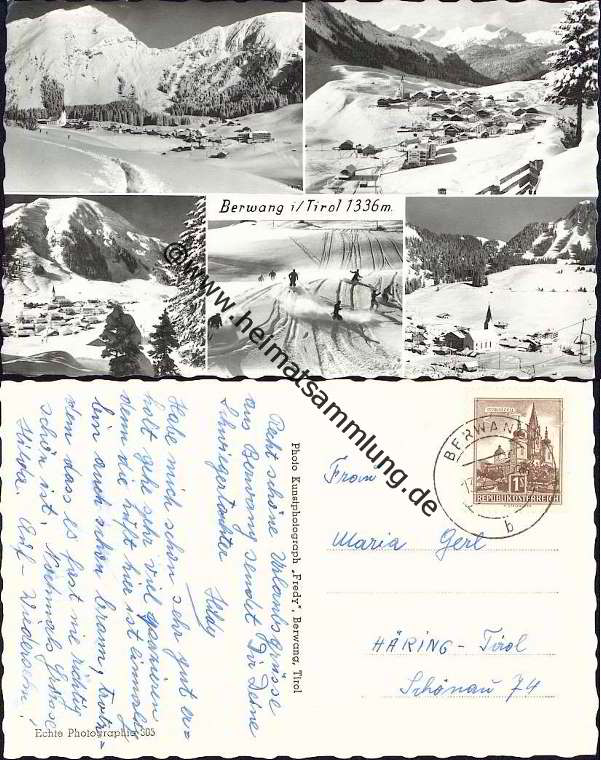 Berwang i/Tirol 1336m.
©www.heimatsammlung.de
Recht schöne Urlaubsgrüsse
aus Berwang sendet Dir Deine
Schwiegertochter
Habe mich schon sehr gut er-
holt gehe sehr viel spazieren
denn die Luft hier ist einmalig
bin auch schon braun, trotz-
dem das es fast nie richtig
schön ist. Nochmals Grüsse
Hilda. Auf Wiedersehn!
Echte Photographie 305
Photo Kunstphotograph „Fredy“, Berwang, Tirol
BERWANG
b
1S
REPUBLIK ÖSTERREICH
Frau
Maria Gerl
HÄRING - Tirol
Schönau 74